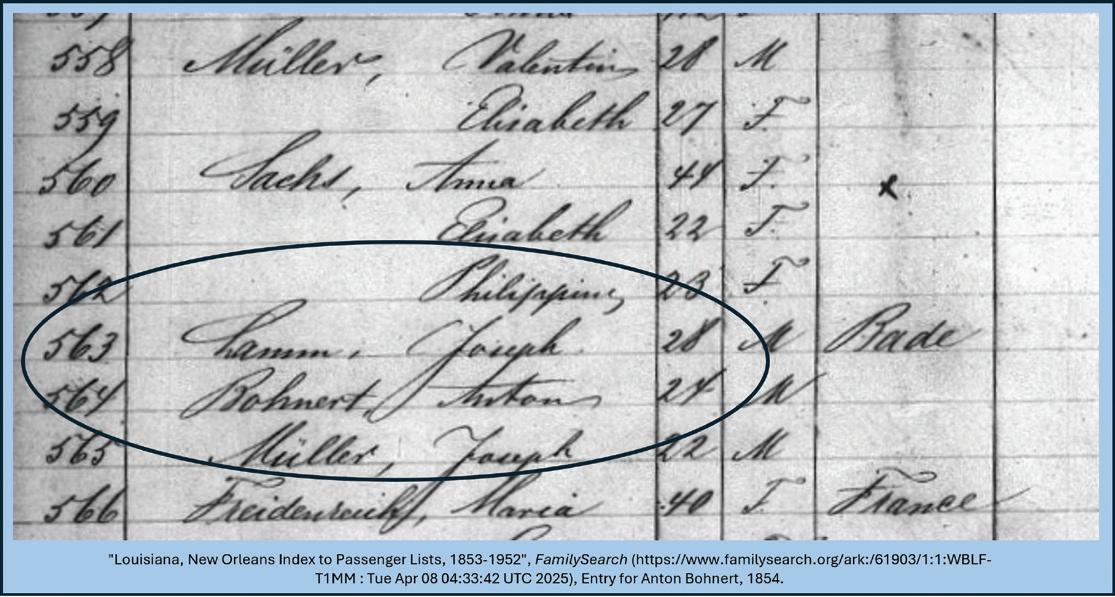 558 Müller, Valentin 28 M
559 Elisabeth 27 F.
560 Sachs, Anna 44 F.
561 Elisabeth 22 F.
562 Philippine 23 F
563 Lamm, Joseph 28 M Bade
564 Bohnert, Anton 24 M
565 Müller, Joseph 22 M
566 Freidenreich, Maria 40 F. France
"Louisiana, New Orleans Index to Passenger Lists, 1853-1952", FamilySearch (https://www.familysearch.org/ark:/61903/1:1:WBLF-
T1MM : Tue Apr 08 04:33:42 UTC 2025), Entry for Anton Bohnert, 1854.